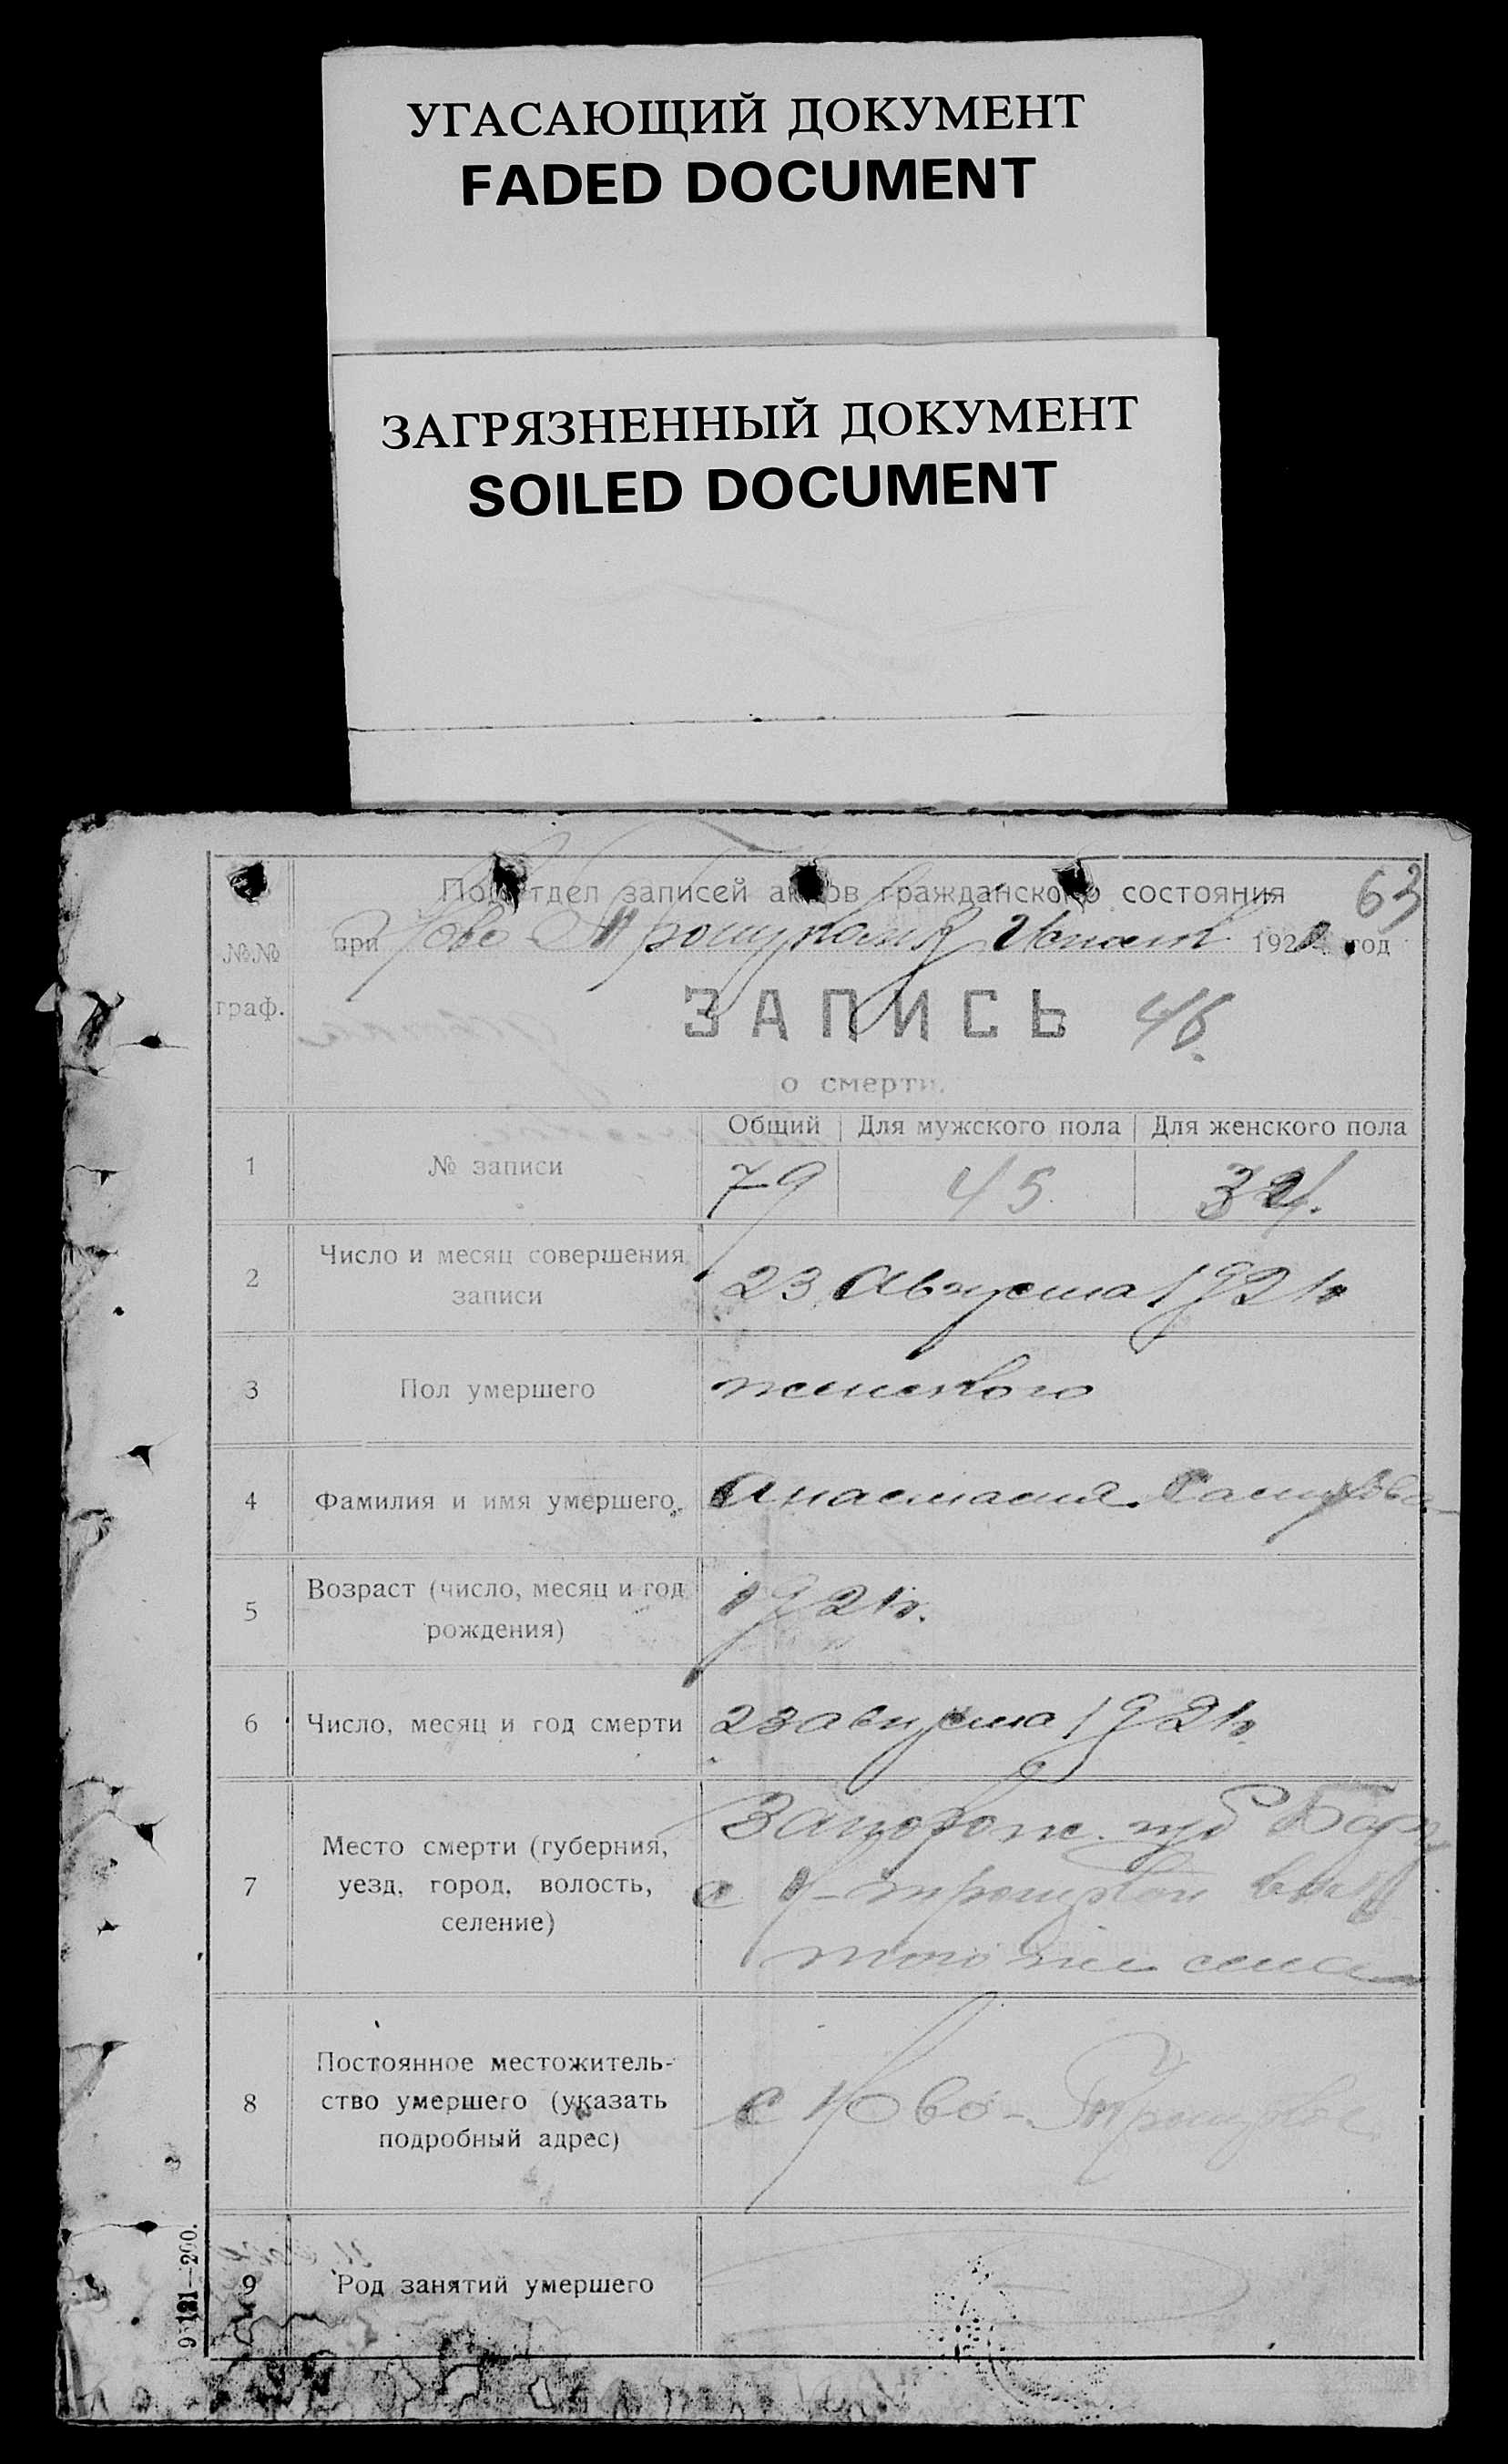 УГАСАЮЩИЙ ДОКУМЕНТ
FADED DOCUMENT
ЗАГРЯЗНЕННЫЙ ДОКУМЕНТ
SOILED DOCUMENT
Подотдел записей актов гражданского состояния
63
№№ при 1921 год
граф.
ЗАПИСЬ 46.
о смерти.
Общий Для мужского пола Для женского пола
1 № записи 79 45 34.
2 Число и месяц совершения
записи
23 Августа 1921 г
3 Пол умершего женского
4 Фамилия и имя умершего. Анастасия
5 Возраст (число, месяц и год
рождения)
1921 г.
6 Число, месяц и год смерти 23 августа 1921 г.
7 Место смерти (губерния,
уезд, город, волость,
селение)
Запорож. губ
с
того же села
8 Постоянное местожитель-
ство умершего (указать
подробный адрес)
с Ново-
9 Род занятий умершего